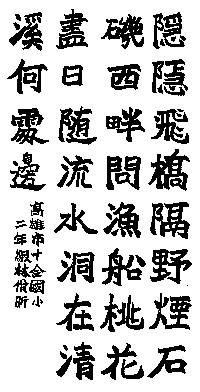 隱隱飛橋隔野煙石
磯西畔問漁船桃花
盡日随流水洞在清
溪何處邊
高雄市十全國小
二年級林俊昕